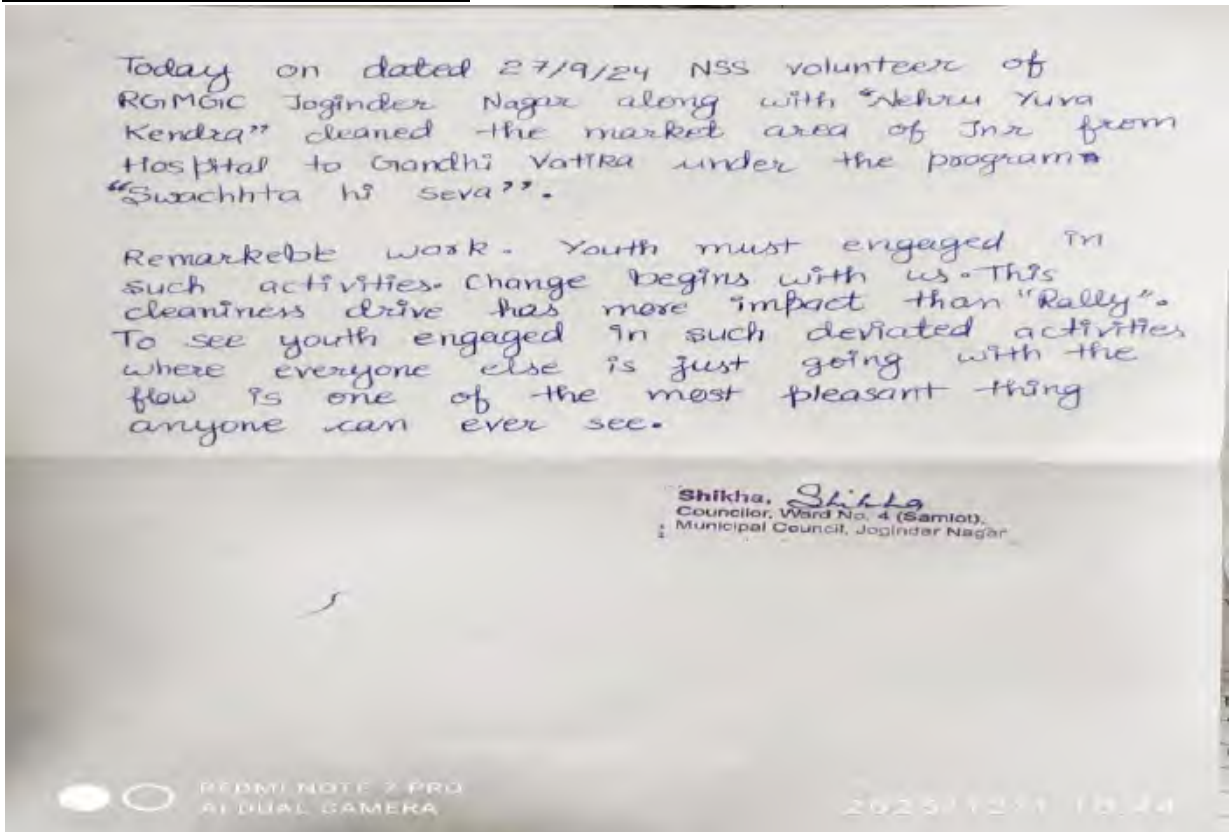 Today on dated 27/9/24 NSS volunteer of
RGMGC Joginder Nagar along with "Nehru Yuva
Kendra" cleaned the market area of Jnr from
Hospital to Gandhi Vatika under the program
"Swachhta hi Seva".
Remarkeble work. Youth must engaged in
such activities. Change begins with us. This
cleaniness drive has more impact than "Rally".
To see youth engaged in such deviated activities
where everyone else is just going with the
flow is one of the most pleasant thing
anyone can ever see.
Shikha, Shikha
Councilor, Ward No. 4 (Samlot),
Municipal Council, Jogindar Nagar
REDMI NOTE 7 PRO
AI DUAL CAMERA